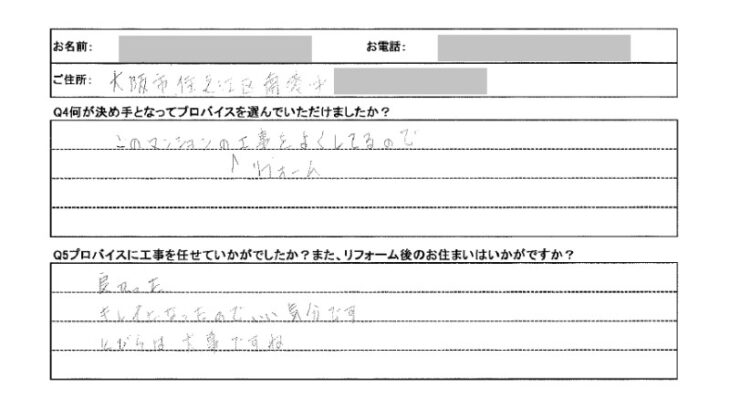 お名前:
お電話:
ご住所: 大阪市住之江区南港中
Q4何が決め手となってプロバイスを選んでいただけましたか?
このマンションの工事をよくしてるので
リフォーム
Q5プロバイスに工事を任せていかがでしたか?また、リフォーム後のお住まいはいかがですか?
良かった
キレイになったので、いい気分です
大事ですね